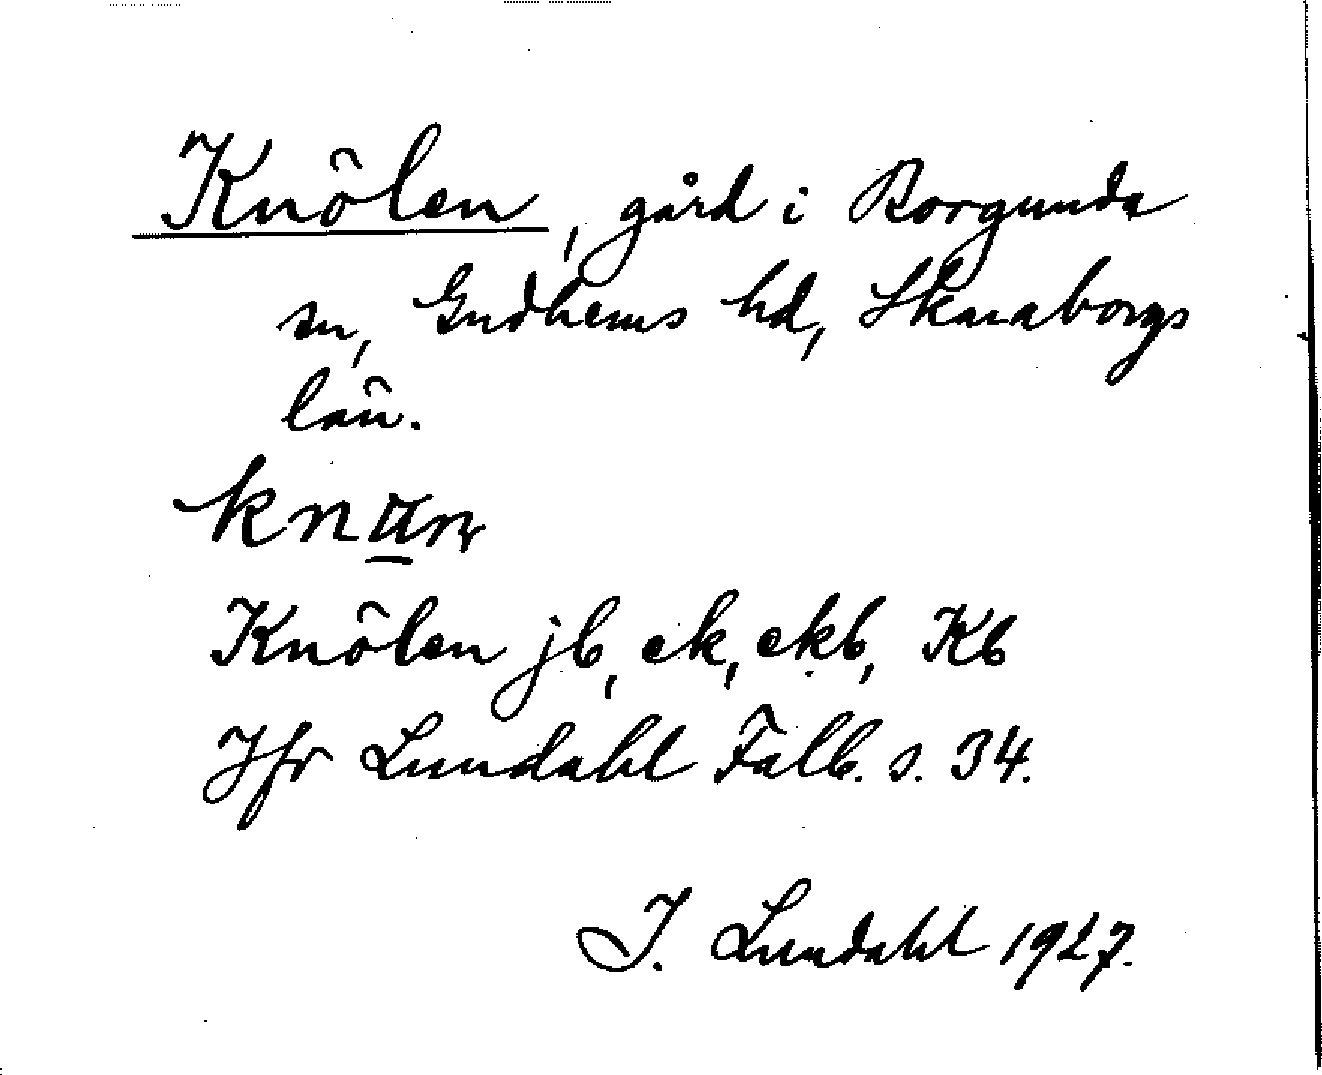 Knölen, gård i Borgunda
sn, Gudhems hd, Skaraborgs
län.
Knölen jb, ek, ekb, Kb
Jfr Lundahl Falb. s. 34.
I. Lundahl 1927.